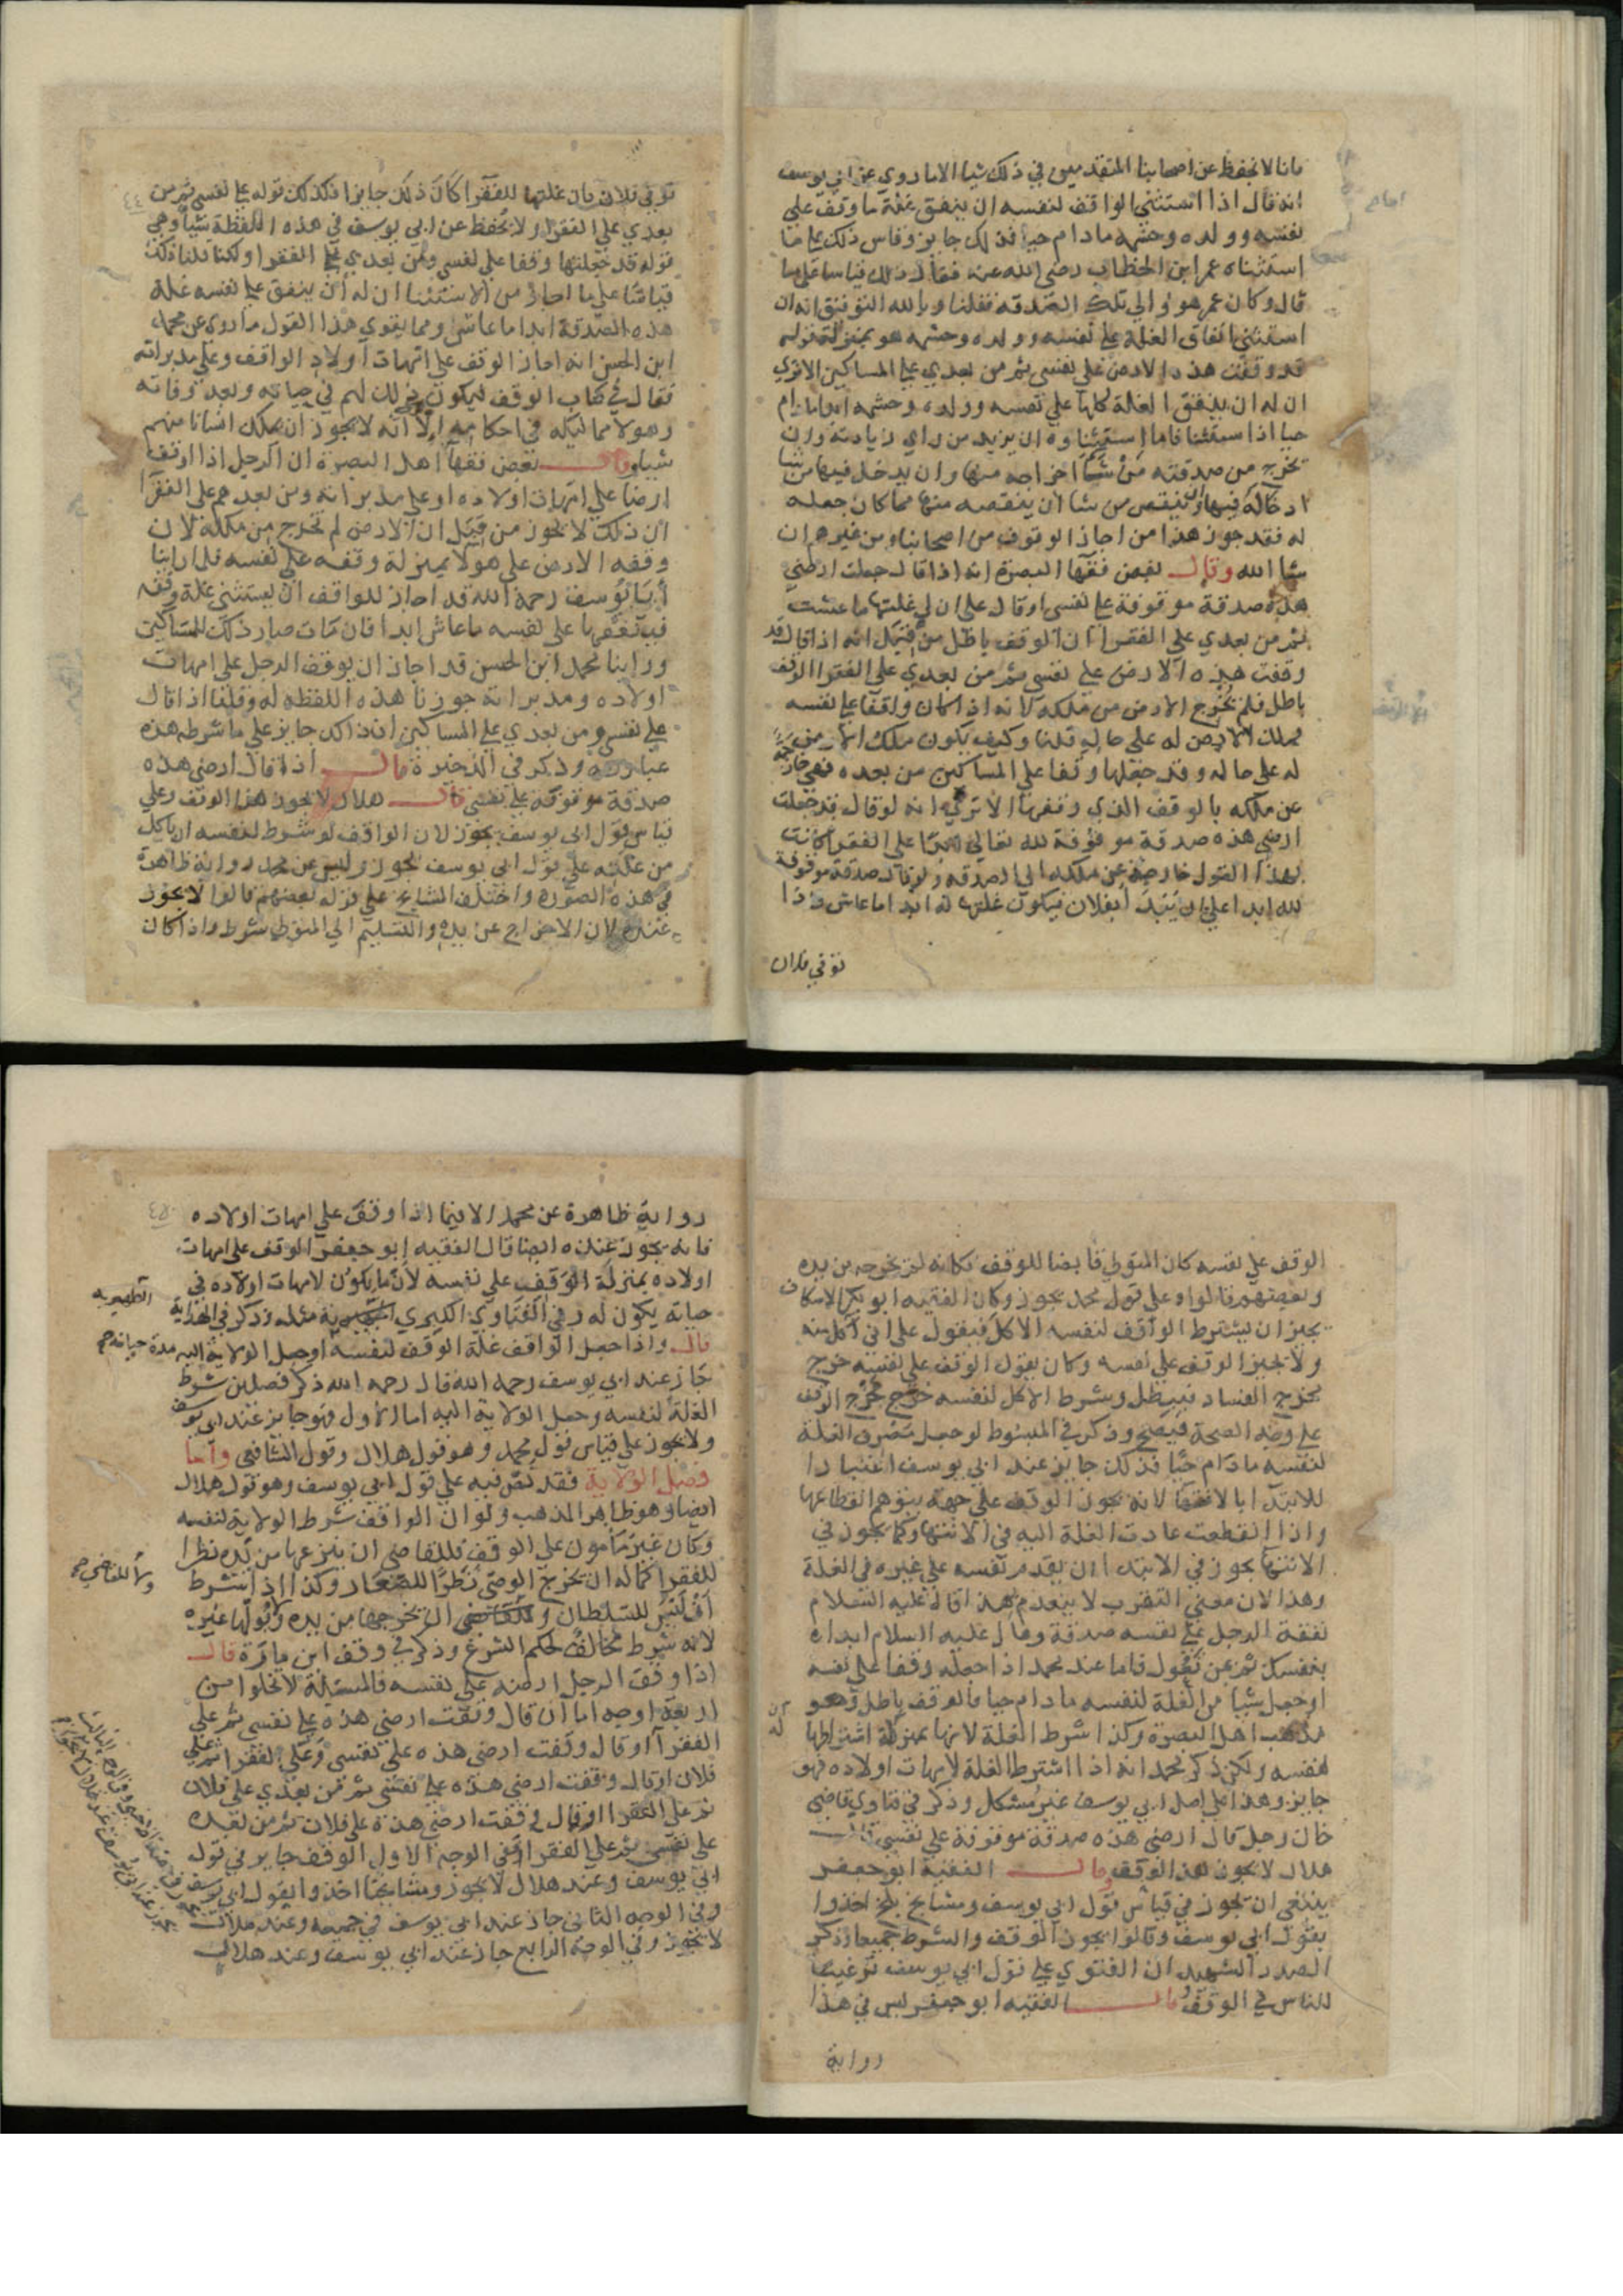 فانا لا نحفظ عن اصحابنا المتقدمين في ذلك شيا الا ما روي عن ابي يوسف
انه قال اذا استثنى الواقف لنفسه ان ينفق غلة ما وقف على
نفسه وولده وحشمه مادام حيا فذلك جايز وقاس ذلك على ما
استثناه عمر ابن الخطاب رضي الله عنه فقال ذلك قياسا على ما
قال وكان عمر هو والي تلك الصدقه فقلنا وبالله التوفيق انه ان
استثنى انفاق الغلة على نفسه وولده وحشمه هو بمنزلة قوله
قد وقفت هذه الارض على نفسي ثم من بعدي على المساكين الا تري
ان له ان ينفق الغلة كلها على نفسه وولده وحشمه ابدا مادام
حيا اذا استثنا فاما استثناوه ان يزيد من راي زيادته وان
يخرج من صدقته من شا اخراجه منها وان يدخل فيها من شا
ادخاله فيها وان ينقص من شا ان ينقصه منها مما كان جعله
له فقد جوز هذا من اجاز الوقوف من اصحابنا ومن غيرهم ان
شا الله وقال بعض فقها البصرة انه اذا قال جعلت ارضي
هذه صدقة موقوفة على نفسي او قال على ان لي غلتها ما عشت
ثم من بعدي على الفقرا ان الوقف باطل من قبل انه اذا قال قد
وقفت هذه الارض على نفسي ثم من بعدي على الفقرا الوقف
باطل فلم يخرج الارض من ملكه لانه اذا كان واقفا على نفسه
فملك الارض له على حاله قلنا وكيف يكون ملك الارض
له على حاله وقد جعلها وقفا على المساكين من بعده فهي خارجة
عن ملكه بالوقف الذي وقفها الا تري انه لو قال قد جعلت
ارضي هذه صدقة موقوفة لله تعالى ابدا على الفقرا كانت
بهذا القول خارجة عن ملكه الى الصدقه ولو قال صدقة موقوفة
لله ابدا على ان يبدا بفلان فيكون غلتها له ابدا ما عاش فاذا
توفي فلان
توفي فلان كان غلتها للفقرا كان ذلك جايزا فكذلك قوله على نفسي ثم من
بعدي على الفقرا ولا نحفظ عن ابي يوسف في هذه اللفظة شيا وهي
قوله قد جعلتها وقفا على نفسي ومن بعدي على الفقرا ولكنا قلنا ذلك
قياسا على ما اجاز من الاستثنا ان له ان ينفق على نفسه غلة
هذه الصدقة ابدا ما عاش ومما يقوي هذا القول ما روي عن محمد
ابن الحسن انه اجاز الوقف على امهات اولاد الواقف وعلى مدبراته
فقال في كتاب الوقف ليكون ذلك لهم في حياته وبعد وفاته
وهولا مماليكه في احكامه الا انه لا يجوز ان يملك انسانا منهم
شيا وقال بعض فقها اهل البصرة ان الرجل اذا اوقف
ارضا على امهات اولاده او على مدبراته ومن بعدهم على الفقرا
ان ذلك لا يجوز من قبل ان الارض لم تخرج من ملكه لان
وقفه الارض على هولا بمنزلة وقفه على نفسه فلما راينا
ابا يوسف رحمه الله قد اجاز للواقف ان يستثنى غلة وقفه
فينفقها على نفسه ما عاش ابدا فان مات صار ذلك للمساكين
وراينا محمد ابن الحسن قد اجاز ان يوقف الرجل على امهات
اولاده ومدبراته جوزنا هذه اللفظه له وقلنا اذا قال
على نفسي ومن بعدي على المساكين ان ذلك جايز على ما شرطه هذه
عبارته وذكر في الذخيرة قال اذا قال ارضي هذه
صدقة موقوفة على نفسي قال هلال لا يجوز هذا الوقف وعلى
قياس قول ابي يوسف يجوز لان الواقف لو شرط لنفسه ان ياكل
من غلته على قول ابي يوسف يجوز وليس عن محمد رواية ظاهرة
في هذه الصورة واختلف المشايخ على قوله بعضهم قالوا لا يجوز
عنده لان الاخراج عن يده والتسليم الى المتولي شرط واذا كان
الوقف على نفسه كان المتولي قابضا للوقف فكانه لم يخرجه من يده
وبعضهم قالوا وعلى قول محمد يجوز وكان الفقيه ابو بكر الاسكاف
يجيز ان يشترط الواقف لنفسه الاكل فيقول على اني آكل منه
ولا يجيز الوقف على نفسه وكان يقول الوقف على نفسه خرج
مخرج الفساد فيبطل وشرط الاكل لنفسه خرج مخرج الوقف
على وجه الصحة فيصح وذكر في المبسوط لو جعل مصرف الغلة
لنفسه مادام حيا فذلك جايز عند ابي يوسف اعتبارا
للابتدا بالانتها لانه يجوز الوقف على جهة يتوهم انقطاعها
واذا انقطعت عادت الغلة اليه في الانتها وكما يجوز في
الانتها يجوز في الابتدا ان يقدم نفسه على غيره في الغلة
وهذا لان معنى التقرب لا ينعدم بهذا قال عليه السلام
نفقة الرجل على نفسه صدقة وقال عليه السلام ابدا
بنفسك ثم من تعول فاما عند محمد اذا جعله وقفا على نفسه
او جعل شيا من الغلة لنفسه مادام حيا فالوقف باطل وهو
مذهب اهل البصرة وكذا شرط الغلة لانها بمنزلة اشتراطها
لنفسه ولكن ذكر محمد انه اذا اشترط الغلة لامهات اولاده فهو
جايز وهذا على اصل ابي يوسف غير مشكل وذكر في فتاوي قاضي
خان رجل قال ارضي هذه صدقة موقوفة على نفسي قال
هلال لا يجوز هذا الوقف وقال الفقيه ابو جعفر
ينبغي ان يجوز في قياس قول ابي يوسف ومشايخ بلخ اخذوا
بقول ابي يوسف وقالوا يجوز الوقف والشرط جميعا وذكر
الصدر الشهيد ان الفتوي على قول ابي يوسف ترغيبا
للناس في الوقف وقال الفقيه ابو جعفر ليس في هذا
رواية
رواية ظاهرة عن محمد الا فيما اذا وقف على امهات اولاده
فانه يجوز عنده ايضا قال الفقيه ابو جعفر الوقف على امهات
اولاده بمنزلة الوقف على نفسه لان ما يكون لامهات اولاده في
حياته يكون له وفي الفتاوي الكبري مثله وذكر في الهداية
الظهيريه
قال واذا جعل الواقف غلة الوقف لنفسه او جعل الولاية اليه مدة حياته صح
جاز عند ابي يوسف رحمه الله قال رحمه الله ذكر فصلين شرط
الغلة لنفسه وجعل الولاية اليه اما الاول فهو جايز عند ابي يوسف
ولا يجوز على قياس قول محمد وهو قول هلال وقول الشافعي واما
فصل الولاية فقد نص فيه على قول ابي يوسف وهو قول هلال
ايضا وهو ظاهر المذهب ولو ان الواقف شرط الولاية لنفسه
وكان غير مأمون على الوقف فللقاضي ان ينزعها من يده نظرا
للفقرا كما له ان يخرج الوصي نظرا للصغار وكذا اذا شرط
ولا للقاضي صح
ان ليس للسلطان ان يخرجها من يده ويوليها غيره
لانه شرط مخالف لحكم الشرع وذكر في وقف ابن مازة قال
اذا وقف الرجل ارضه على نفسه فالمسئلة لا تخلوا من
اربعة اوجه اما ان قال وقفت ارضي هذه على نفسي ثم على
الفقرا او قال وقفت ارضي هذه على نفسي وعلى الفقرا ثم على
فلان او قال وقفت ارضي هذه على نفسي ثم من بعدي على فلان
ثم على الفقرا او قال وقفت ارضي هذه على فلان ثم من بعده
على نفسي ثم على الفقرا ففي الوجه الاول الوقف جايز في قول
ابي يوسف وعند هلال لا يجوز ومشايخنا اخذوا بقول ابي يوسف
وفي الوجه الثاني جاز عند ابي يوسف في جميعه وعند هلال
لا يجوز وفي الوجه الرابع جاز عند ابي يوسف وعند هلال